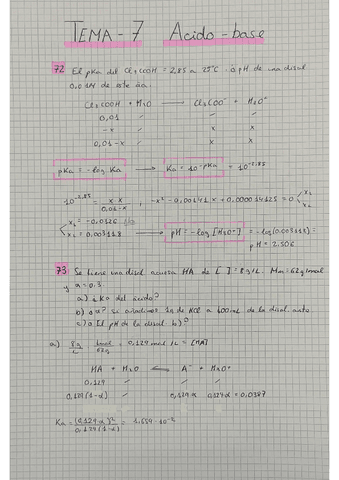 TEMA - 7 Acido - base
72. El pKa del Cl₂COOH = 2,85 a 25°C. ¿ pH de una disol
0,01M de este ác.
Cl₂COOH + H₂O → Cl₂COO⁻ + H₃O⁺
0,01 / / /
-x / x x
0,01-x / x x
pKa = -log Ka → Ka = 10^-pKa = 10^-2,85
10^-2,85 = x·x / 0,01-x ; -x² - 0,00141x + 0,000014125 = 0 x₁ x₂
x₁ = -0,0126
x₂ = 0,003118 → pH = -log [H₃O+] = -log(0,003118) =
pH = 2.506
73. Se tiene una disol acuosa HA de [ ] = 8g/L. Mm = 62g/mol
y α = 0.3
a) ¿ Ka del ácido?
b) α? si añadimos 1g de HCl a 600mL de la disol. ante
c) ¿ El pH de la disol b)?
a) 8g/L · 1mol/62g = 0,129 mol/L = [HA]
HA + H₂O ⇄ A⁻ + H₃O⁺
0,129 / / /
0,129(1-α) / 0,129α 0,129α = 0,0387
Ka = (0,129α)² / 0,129(1-α) = 1,659·10⁻²